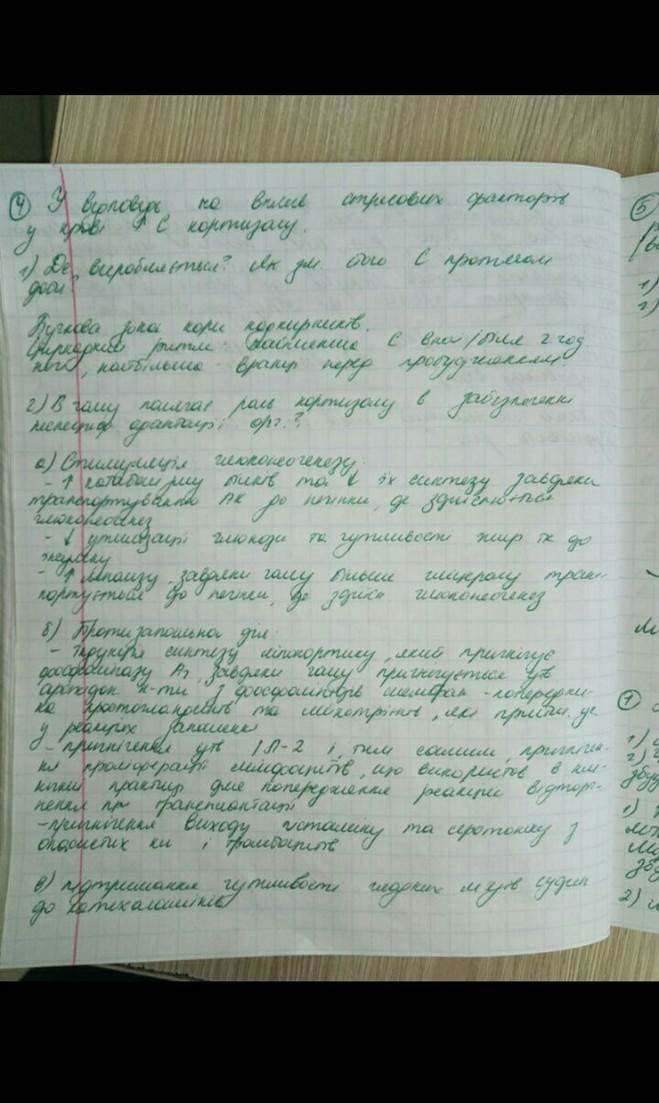 ④ У відповідь на вплив стресових факторів
у крові ↑ С кортизолу.
1) Де виробляється? Як зм його С протягом
доби?
Пучкова зона кори наднирників.
Циркадний ритм: найменша С вночі/біля 2 год
ночі, найбільша - вранці перед пробудженням
2) В чому полягає роль кортизолу в забезпеченні
неспециф адаптації орг.?
а) Стимуляція глюконеогенезу:
- ↑ катаболізму білків та ↓ їх синтезу завдяки
транспортуванню АК до печінки, де здійснюється
глюконеогенез
- ↓ утилізації глюкози та чутливості жир тк до
інсуліну
- ↑ ліполізу завдяки чому більше гліцеролу тран-
спортується до печінки, де здійсн глюконеогенез
б) Протизапальна дія:
- індукція синтезу ліпокортину, який пригнічує
фосфоліпазу А₂, завдяки чому пригнічується утв
арахідон к-ти з фосфоліпідів мембран - попередни-
ка простогландинів та лейкотрієнів, які
у реакціях запалення
- пригнічення утв ІЛ-2 і, тим самим, пригнічен-
ня проліферації лімфоцитів, що використов в клі-
нічній практиці для попередження реакції відторг-
нення при трансплантації
- пригнічення виходу гістаміну та серотоніну з
опасистих кл і тромбоцитів
в) підтримання чутливості гладких м'язів судин
до катехоламінів
⑤
1)
2)
⑦
1)
2)
1)
2)